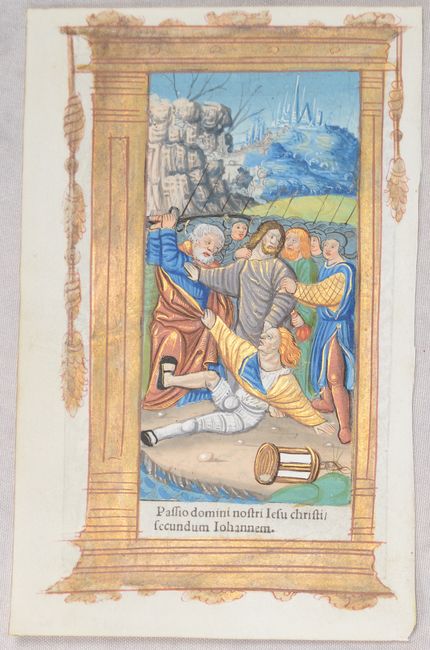 Passio domini nostri Iesu christi/
secundum Iohannem.